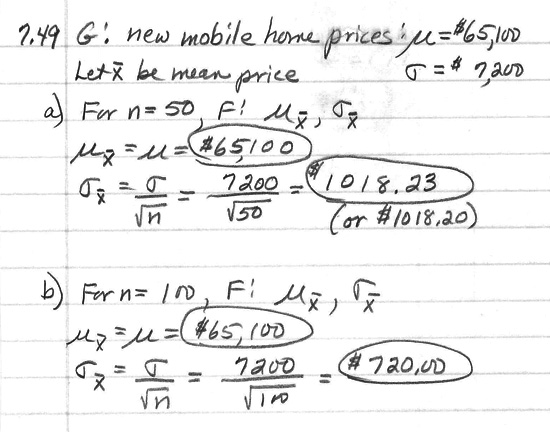 7.49 G: new mobile home prices: μ = $65,100
Let x̄ be mean price σ = $ 7,200
a) For n = 50, F: μx̄, σx̄
μx̄ = μ = $65,100
σx̄ = σ/√n = 7200/√50 = $1018.23
(or $1018,20)
b) For n = 100, F: μx̄, σx̄
μx̄ = μ = $65,100
σx̄ = σ/√n = 7200/√100 = $720.00